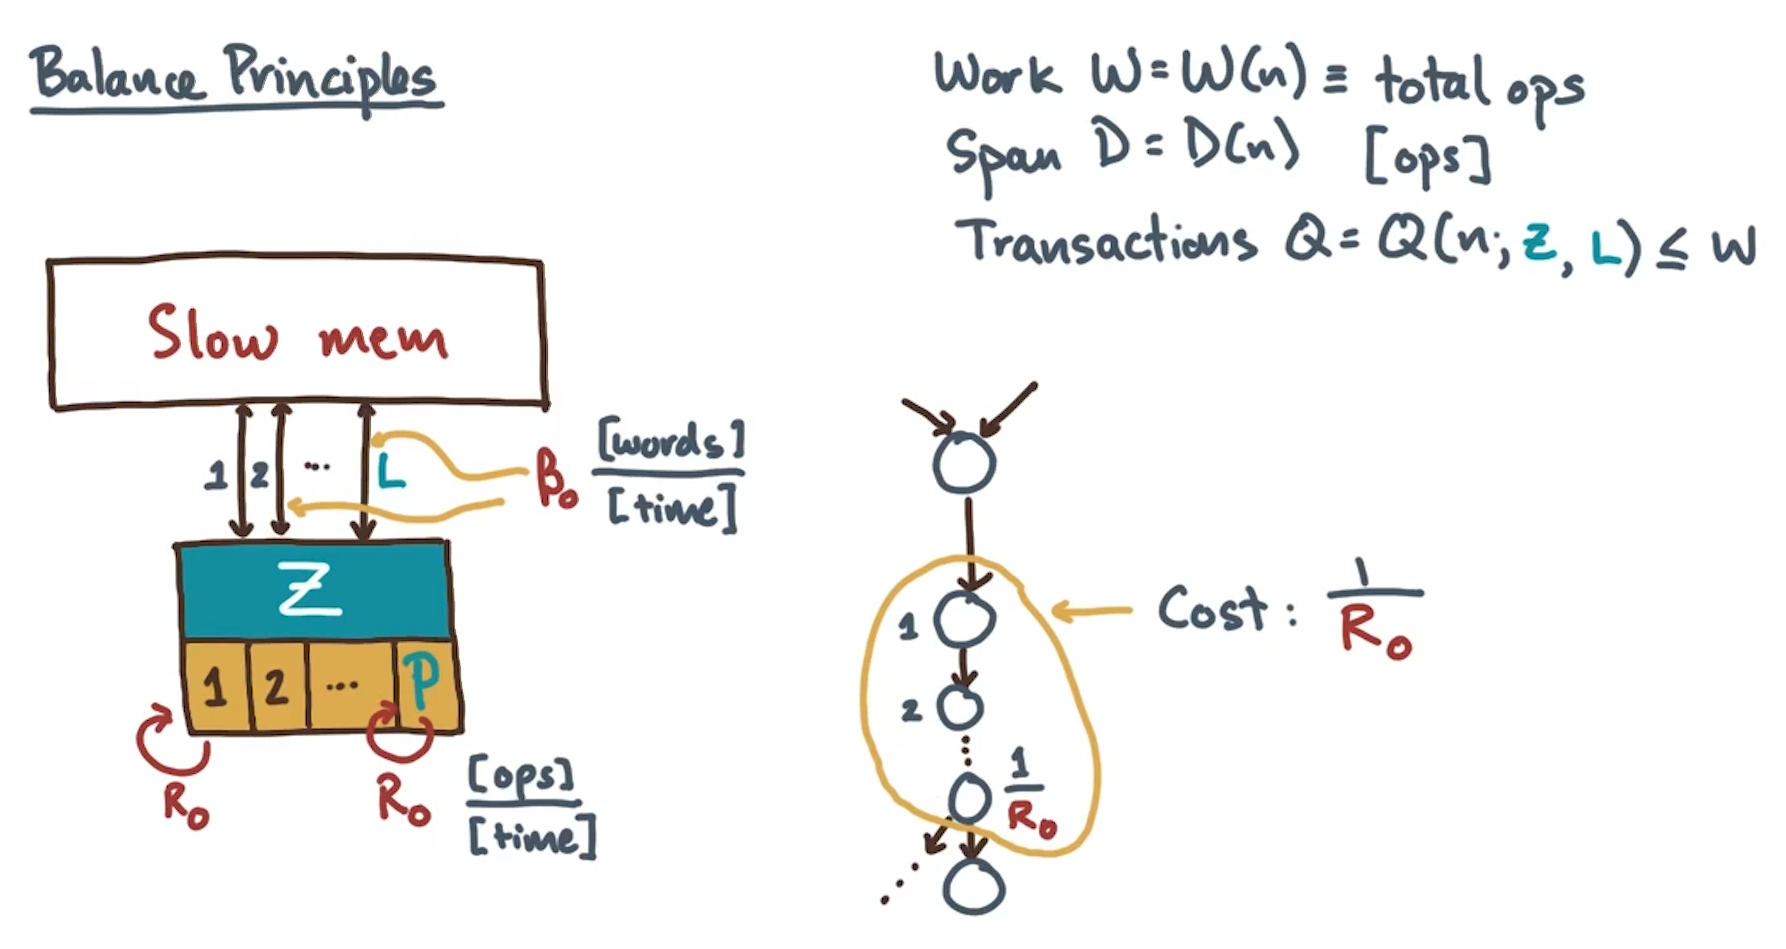 Balance Principles
Work W = W(n) ≡ total ops
Span D = D(n) [ops]
Transactions Q = Q(n; Z, L) ≤ W
Slow mem
1 2 ... L
β₀ [words]
[time]
Z
1 2 ... P
R₀ R₀ [ops]
[time]
1
2
1
R₀
Cost: 1
R₀